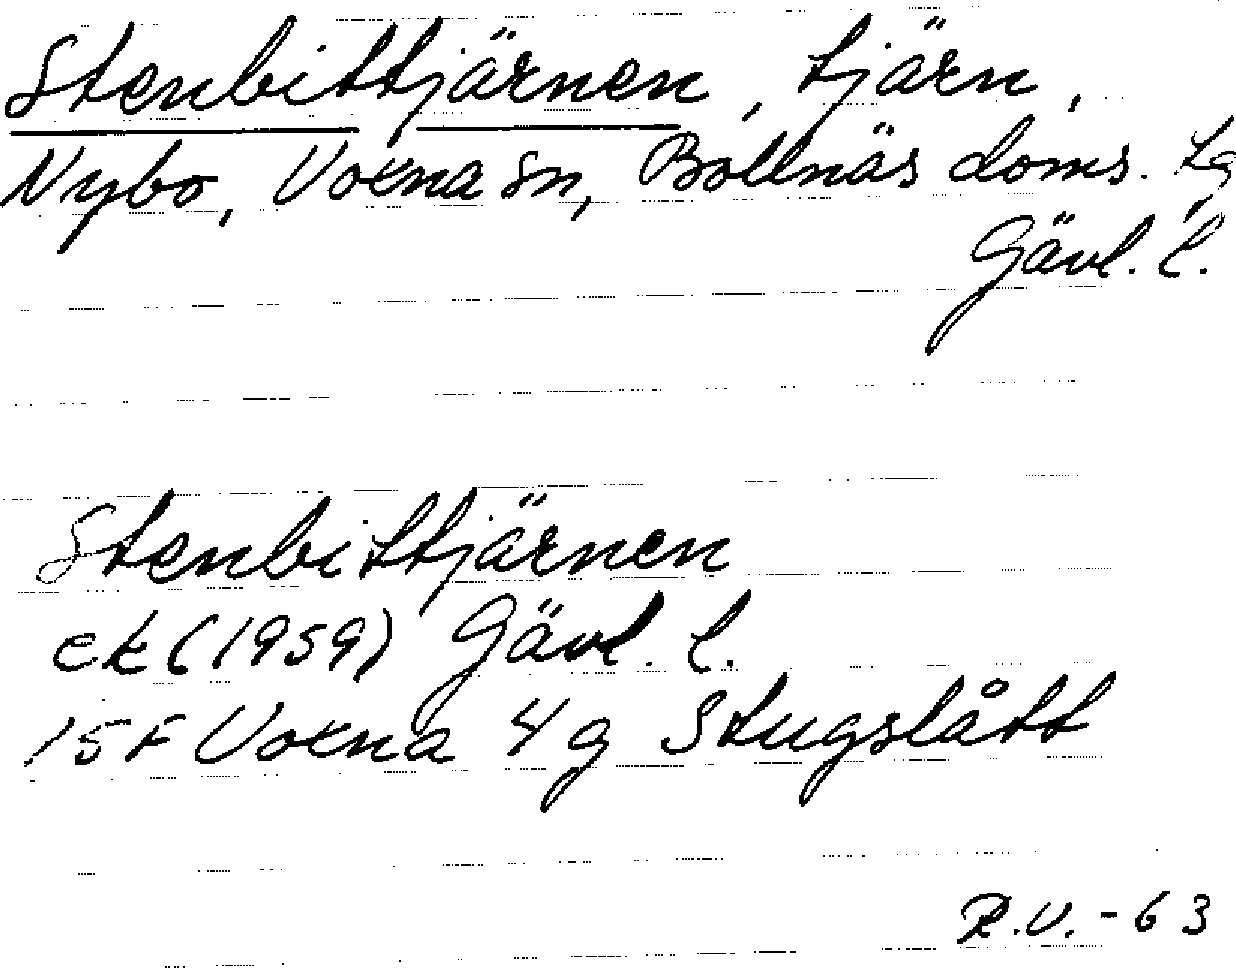 Stenbittjärnen, tjärn,
Nybo, Voxna sn, Bollnäs doms. lg,
Gävl. l.
Stenbittjärnen
ek (1959) Gävl. l.
15F Voxna 4g Stugslått
R.V. - 63